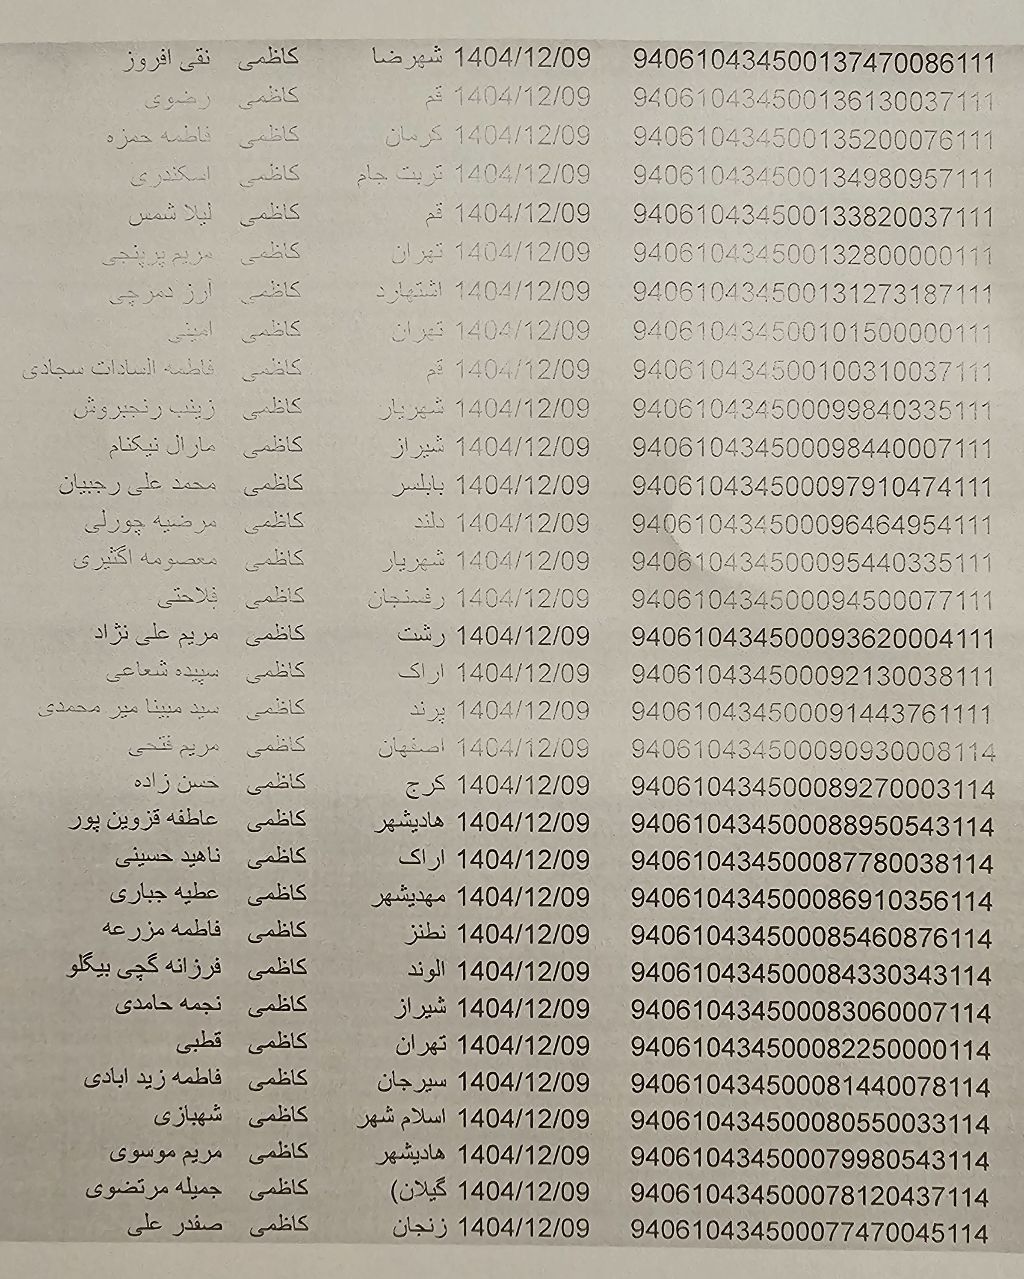 نقی افروز کاظمی شهرضا 1404/12/09 940610434500137470086111
رضوی کاظمی قم 1404/12/09 940610434500136130037111
فاطمه حمزه کاظمی کرمان 1404/12/09 940610434500135200076111
اسکندری کاظمی تربت جام 1404/12/09 940610434500134980957111
لیلا شمس کاظمی قم 1404/12/09 940610434500133820037111
مریم پرپنچی کاظمی تهران 1404/12/09 940610434500132800000111
ارز دمرچی کاظمی اشتهارد 1404/12/09 940610434500131273187111
امینی کاظمی تهران 1404/12/09 940610434500101500000111
فاطمه السادات سجادی کاظمی قم 1404/12/09 940610434500100310037111
زینب رنجبروش کاظمی شهریار 1404/12/09 940610434500099840335111
مارال نیکنام کاظمی شیراز 1404/12/09 940610434500098440007111
محمد علی رجبیان کاظمی بابلسر 1404/12/09 940610434500097910474111
مرضیه چورلی کاظمی دلند 1404/12/09 940610434500096464954111
معصومه اکثیری کاظمی شهریار 1404/12/09 940610434500095440335111
فلاحتی کاظمی رفسنجان 1404/12/09 940610434500094500077111
مریم علی نژاد کاظمی رشت 1404/12/09 940610434500093620004111
سپیده شعاعی کاظمی اراک 1404/12/09 940610434500092130038111
سید مبینا میر محمدی کاظمی پرند 1404/12/09 940610434500091443761111
مریم فتحی کاظمی اصفهان 1404/12/09 940610434500090930008114
حسن زاده کاظمی کرج 1404/12/09 940610434500089270003114
عاطفه قزوین پور کاظمی هادیشهر 1404/12/09 940610434500088950543114
ناهید حسینی کاظمی اراک 1404/12/09 940610434500087780038114
عطیه جباری کاظمی مهدیشهر 1404/12/09 940610434500086910356114
فاطمه مزرعه کاظمی نطنز 1404/12/09 940610434500085460876114
فرزانه گچی بیگلو کاظمی الوند 1404/12/09 940610434500084330343114
نجمه حامدی کاظمی شیراز 1404/12/09 940610434500083060007114
قطبی کاظمی تهران 1404/12/09 940610434500082250000114
فاطمه زید ابادی کاظمی سیرجان 1404/12/09 940610434500081440078114
شهبازی کاظمی اسلام شهر 1404/12/09 940610434500080550033114
مریم موسوی کاظمی هادیشهر 1404/12/09 940610434500079980543114
جمیله مرتضوی کاظمی گیلان) 1404/12/09 940610434500078120437114
صفدر علی کاظمی زنجان 1404/12/09 940610434500077470045114